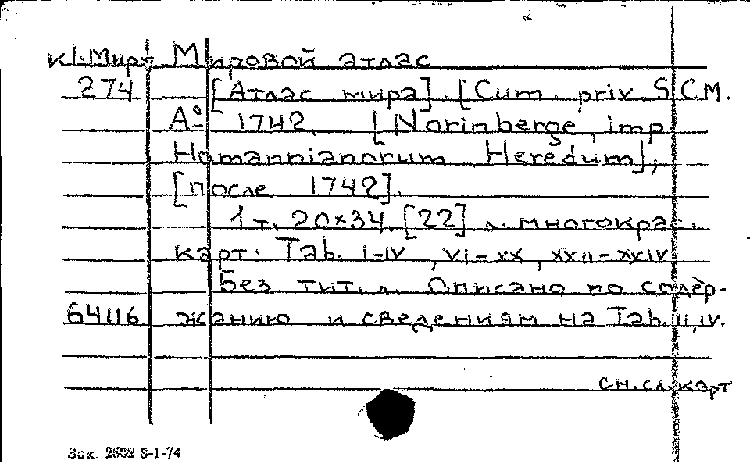 К1.Мирт Мировой атлас
274 [Атлас мира]. [Cum priv. S.C.M.
Aº 1742. [Norinberge, imp.
Homannianorum Heredum],
[после 1742].
1 т. 20×34. [22] л. многокрас.
карт: Tab. I-IV, VI-XX, XXII-XXIV.
Без тит. л. Описано по содер-
64116 жанию и сведениям на Tab. II, IV.
сн.сл.карт
Зак. 2692 5-1-74